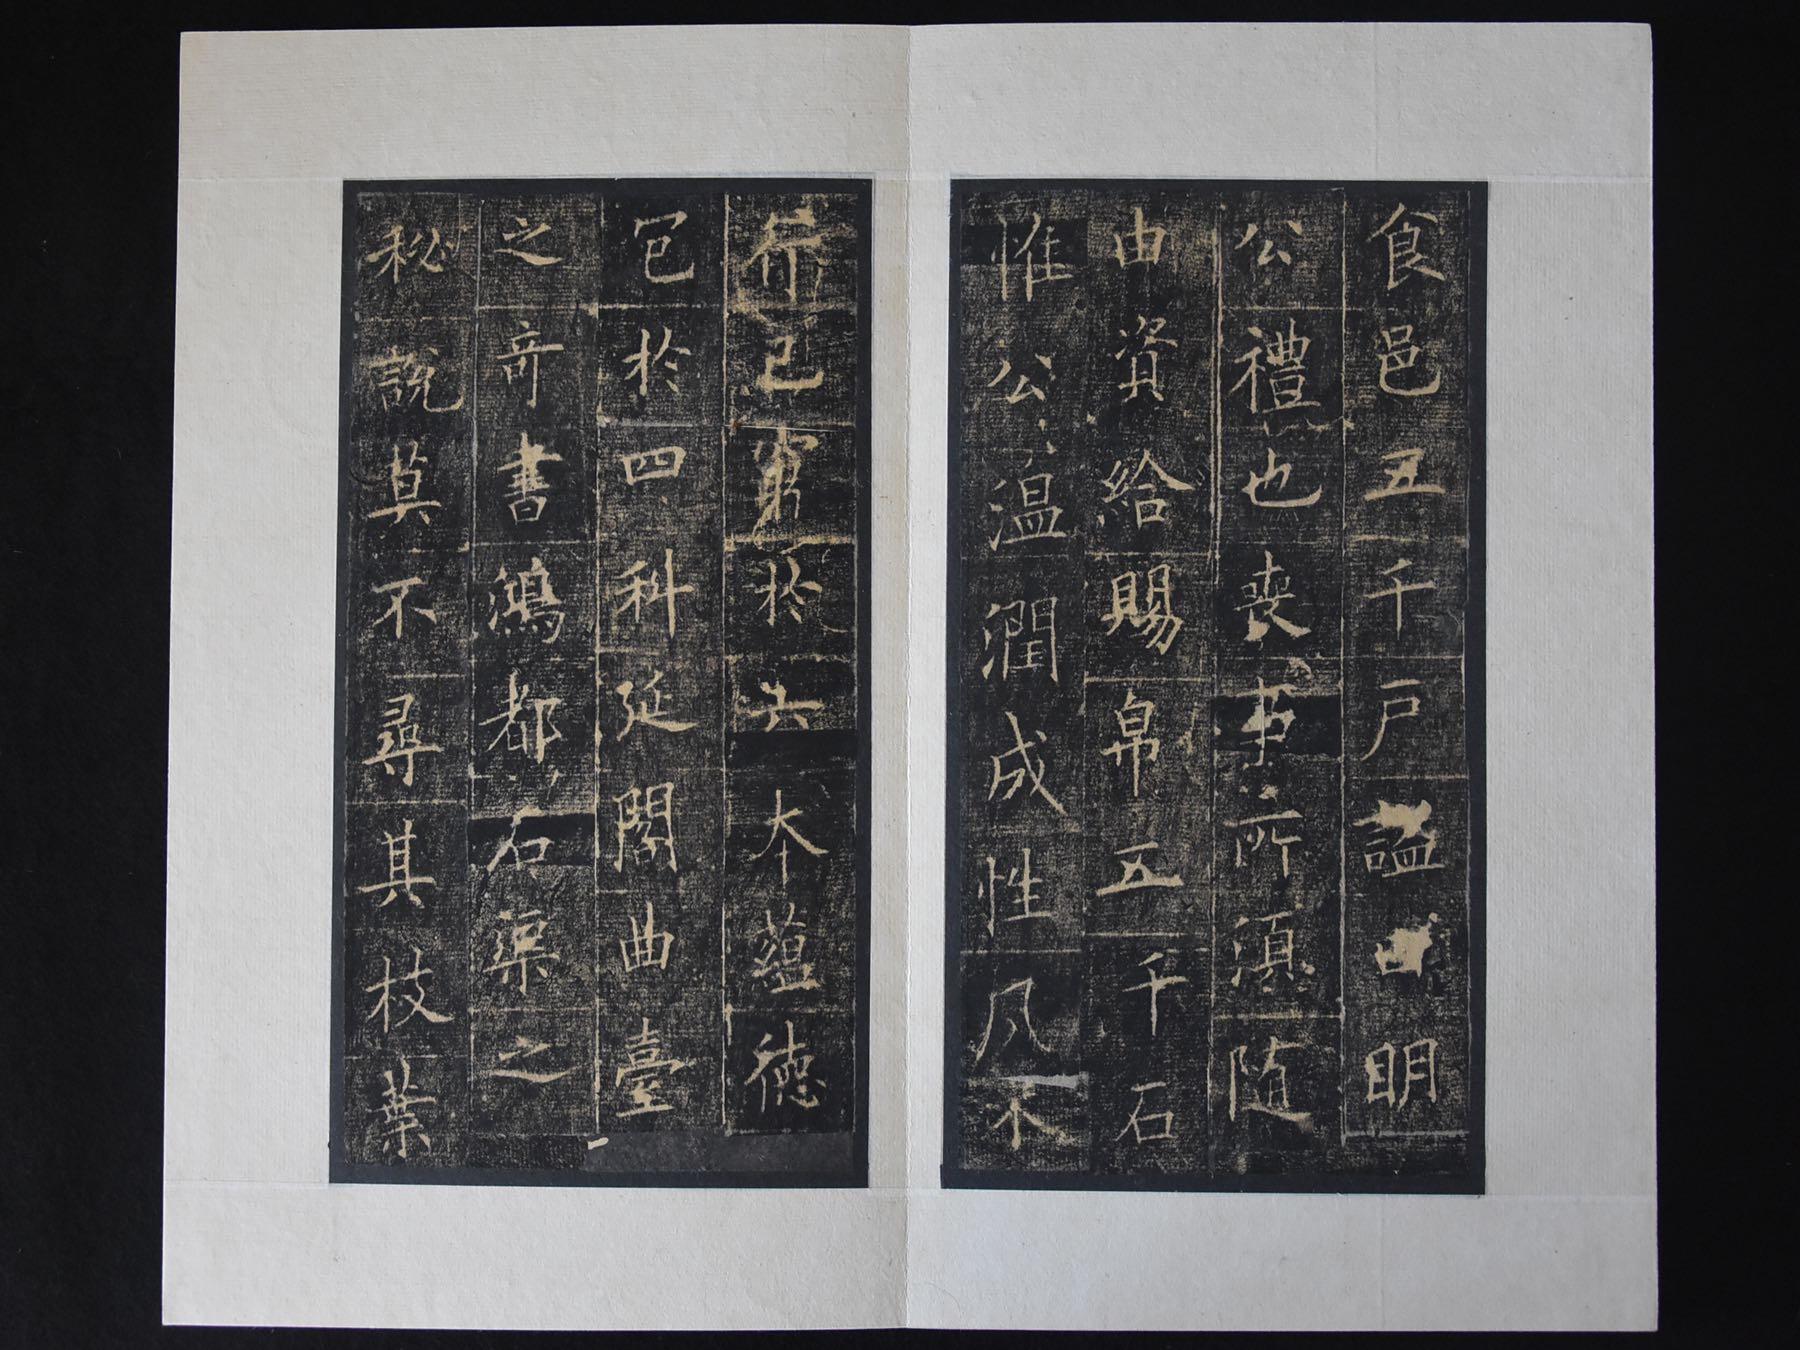 食邑五千戶諡曰明
公禮也喪事所須隨
由資給賜帛五千石
惟公温潤成性
行己窮於六本蘊德
包於四科延閣曲臺
之奇書鴻都石渠之
秘說莫不尋其枝葉